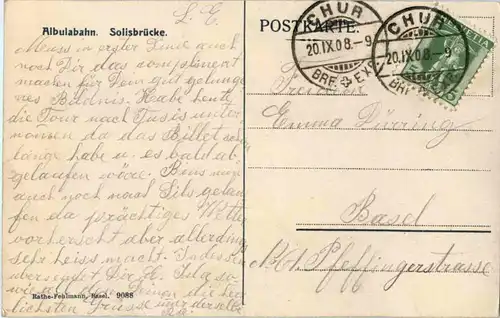 L. E.
Albulabahn. Solisbrücke.
Muss in erster Linie auch
noch Dir das Compliment
machen für Dein gut gelunge
nes Bildnis. Habe heute
die Tour nach Tusis unter
nommen da das Billet schon
lange habe u. es bald ab
gelaufen wäre. Bin nun
auch noch nach Sils gelau
fen da prächtiges Wetter
vorherscht aber allerdings
sehr heiss macht. Indessen
übersendet Dir H. so
wie all den Deinen die herz
lichsten Grüsse nur derselbe
Rathe-Fehlmann, Basel. 9088
POSTKARTE.
CHUR
20.IX.08.-9
BRF. EXP.
CHUR
20.IX.08.-9
BRF.
HELVETIA
5
Fräulein
Emma Dürring
Basel
Pfeffingerstrasse